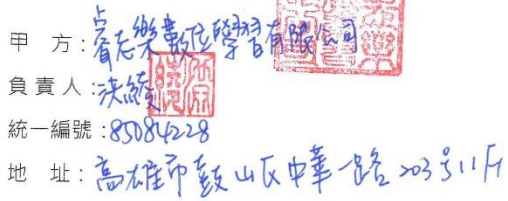 甲 方:睿志樂數位學習有限公司
負責人:洪綾
統一編號:85084228
地 址:高雄市鼓山区中華一路203号11F